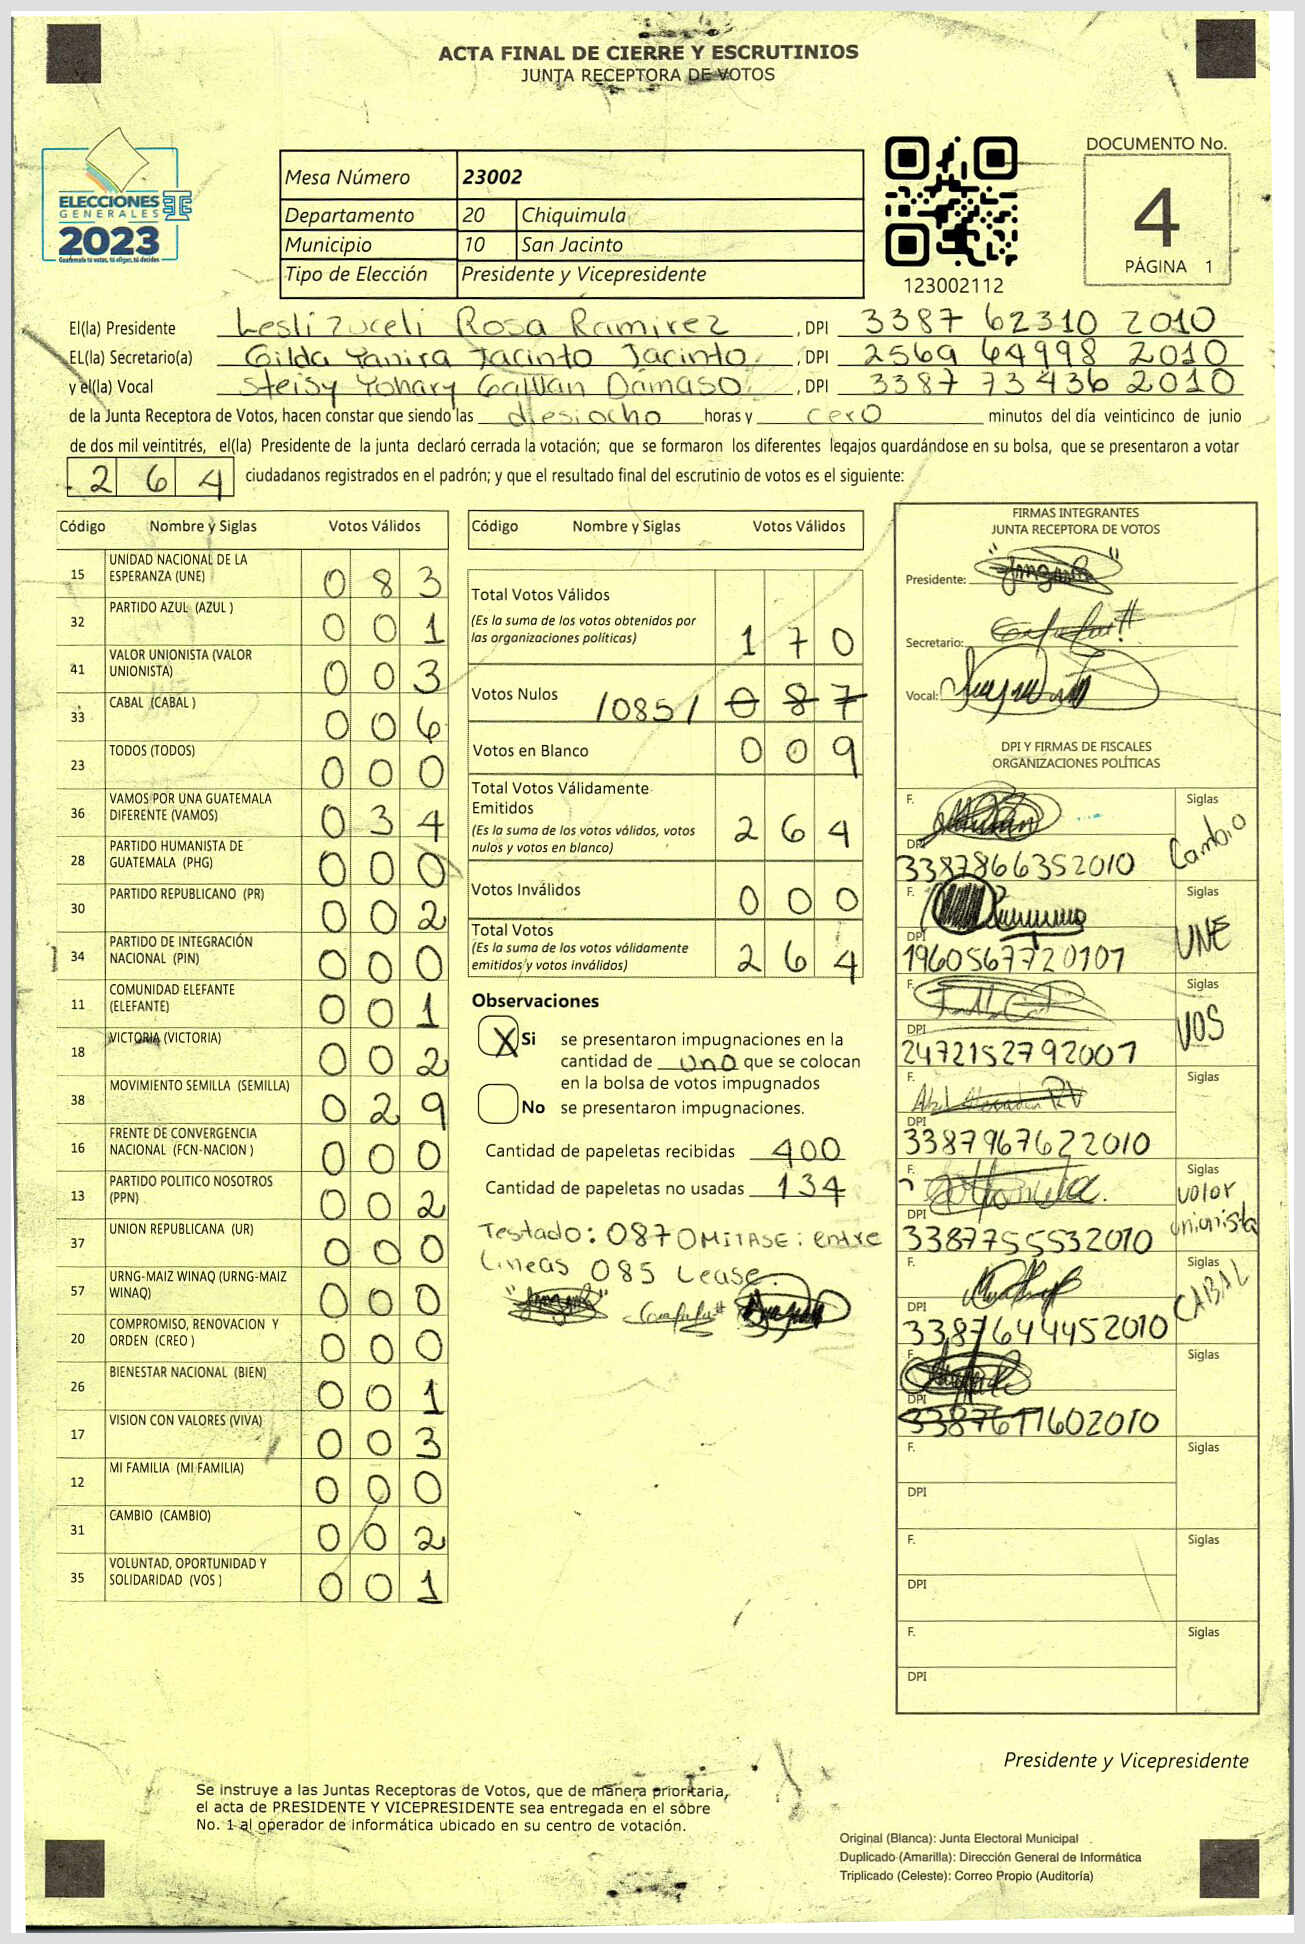 ACTA FINAL DE CIERRE Y ESCRUTINIOS
JUNTA RECEPTORA DE VOTOS
ELECCIONES
GENERALES
2023
Guatemala tú votas, tú eliges, tú decides
Mesa Número 23002
Departamento 20 Chiquimula
Municipio 10 San Jacinto
Tipo de Elección Presidente y Vicepresidente
123002112
DOCUMENTO No.
4
PÁGINA 1
El(la) Presidente Lesli Zuceli Rosa Ramirez , DPI 3387 62310 2010
EL(la) Secretario(a) Gilda Yanira Jacinto Jacinto , DPI 2569 64998 2010
y el(la) Vocal Steisy Yohary Galvan Damaso , DPI 3387 73436 2010
de la Junta Receptora de Votos, hacen constar que siendo las diesiocho horas y cero minutos del día veinticinco de junio
de dos mil veintitrés, el(la) Presidente de la junta declaró cerrada la votación; que se formaron los diferentes legajos guardándose en su bolsa, que se presentaron a votar
264 ciudadanos registrados en el padrón; y que el resultado final del escrutinio de votos es el siguiente:
Código Nombre y Siglas Votos Válidos
15 UNIDAD NACIONAL DE LA ESPERANZA (UNE) 083
32 PARTIDO AZUL (AZUL ) 001
41 VALOR UNIONISTA (VALOR UNIONISTA) 003
33 CABAL (CABAL ) 006
23 TODOS (TODOS) 000
36 VAMOS POR UNA GUATEMALA DIFERENTE (VAMOS) 034
28 PARTIDO HUMANISTA DE GUATEMALA (PHG) 000
30 PARTIDO REPUBLICANO (PR) 002
34 PARTIDO DE INTEGRACIÓN NACIONAL (PIN) 000
11 COMUNIDAD ELEFANTE (ELEFANTE) 001
18 VICTORIA (VICTORIA) 002
38 MOVIMIENTO SEMILLA (SEMILLA) 029
16 FRENTE DE CONVERGENCIA NACIONAL (FCN-NACION ) 000
13 PARTIDO POLITICO NOSOTROS (PPN) 002
37 UNION REPUBLICANA (UR) 000
57 URNG-MAIZ WINAQ (URNG-MAIZ WINAQ) 000
20 COMPROMISO, RENOVACION Y ORDEN (CREO ) 000
26 BIENESTAR NACIONAL (BIEN) 001
17 VISION CON VALORES (VIVA) 003
12 MI FAMILIA (MI FAMILIA) 000
31 CAMBIO (CAMBIO) 002
35 VOLUNTAD, OPORTUNIDAD Y SOLIDARIDAD (VOS ) 001
Código Nombre y Siglas Votos Válidos
Total Votos Válidos
(Es la suma de los votos obtenidos por
las organizaciones políticas) 170
Votos Nulos /085/ 087
Votos en Blanco 009
Total Votos Válidamente
Emitidos
(Es la suma de los votos válidos, votos
nulos y votos en blanco) 264
Votos Inválidos 000
Total Votos
(Es la suma de los votos válidamente
emitidos y votos inválidos) 264
Observaciones
X Si se presentaron impugnaciones en la
cantidad de uno que se colocan
en la bolsa de votos impugnados
No se presentaron impugnaciones.
Cantidad de papeletas recibidas 400
Cantidad de papeletas no usadas 134
Testado: 087 OMITASE: entre
Lineas 085 Lease.
FIRMAS INTEGRANTES
JUNTA RECEPTORA DE VOTOS
Presidente:
Secretario:
Vocal:
DPI Y FIRMAS DE FISCALES
ORGANIZACIONES POLÍTICAS
F. Siglas Cambio
DPI 3387866352010
F. Siglas UNE
DPI 1960567720101
F. Siglas VOS
DPI 2472152792001
F. Siglas
DPI 3387967622010
F. Siglas valor unionista
DPI 3387755532010
F. Siglas CABAL
DPI 3387644452010
F. Siglas
DPI 3387611602010
F. Siglas
DPI
F. Siglas
DPI
F. Siglas
DPI
Presidente y Vicepresidente
Se instruye a las Juntas Receptoras de Votos, que de manera prioritaria,
el acta de PRESIDENTE Y VICEPRESIDENTE sea entregada en el sobre
No. 1 al operador de informática ubicado en su centro de votación.
Original (Blanca): Junta Electoral Municipal
Duplicado (Amarilla): Dirección General de Informática
Triplicado (Celeste): Correo Propio (Auditoría)